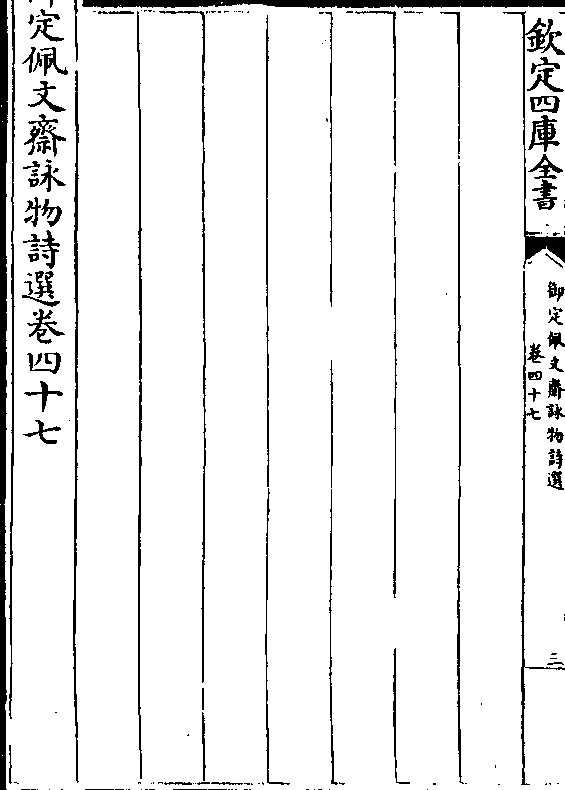 欽定四庫全書
御定佩文齋詠物詩選
卷四十七
三
御定佩文齋詠物詩選卷四十七